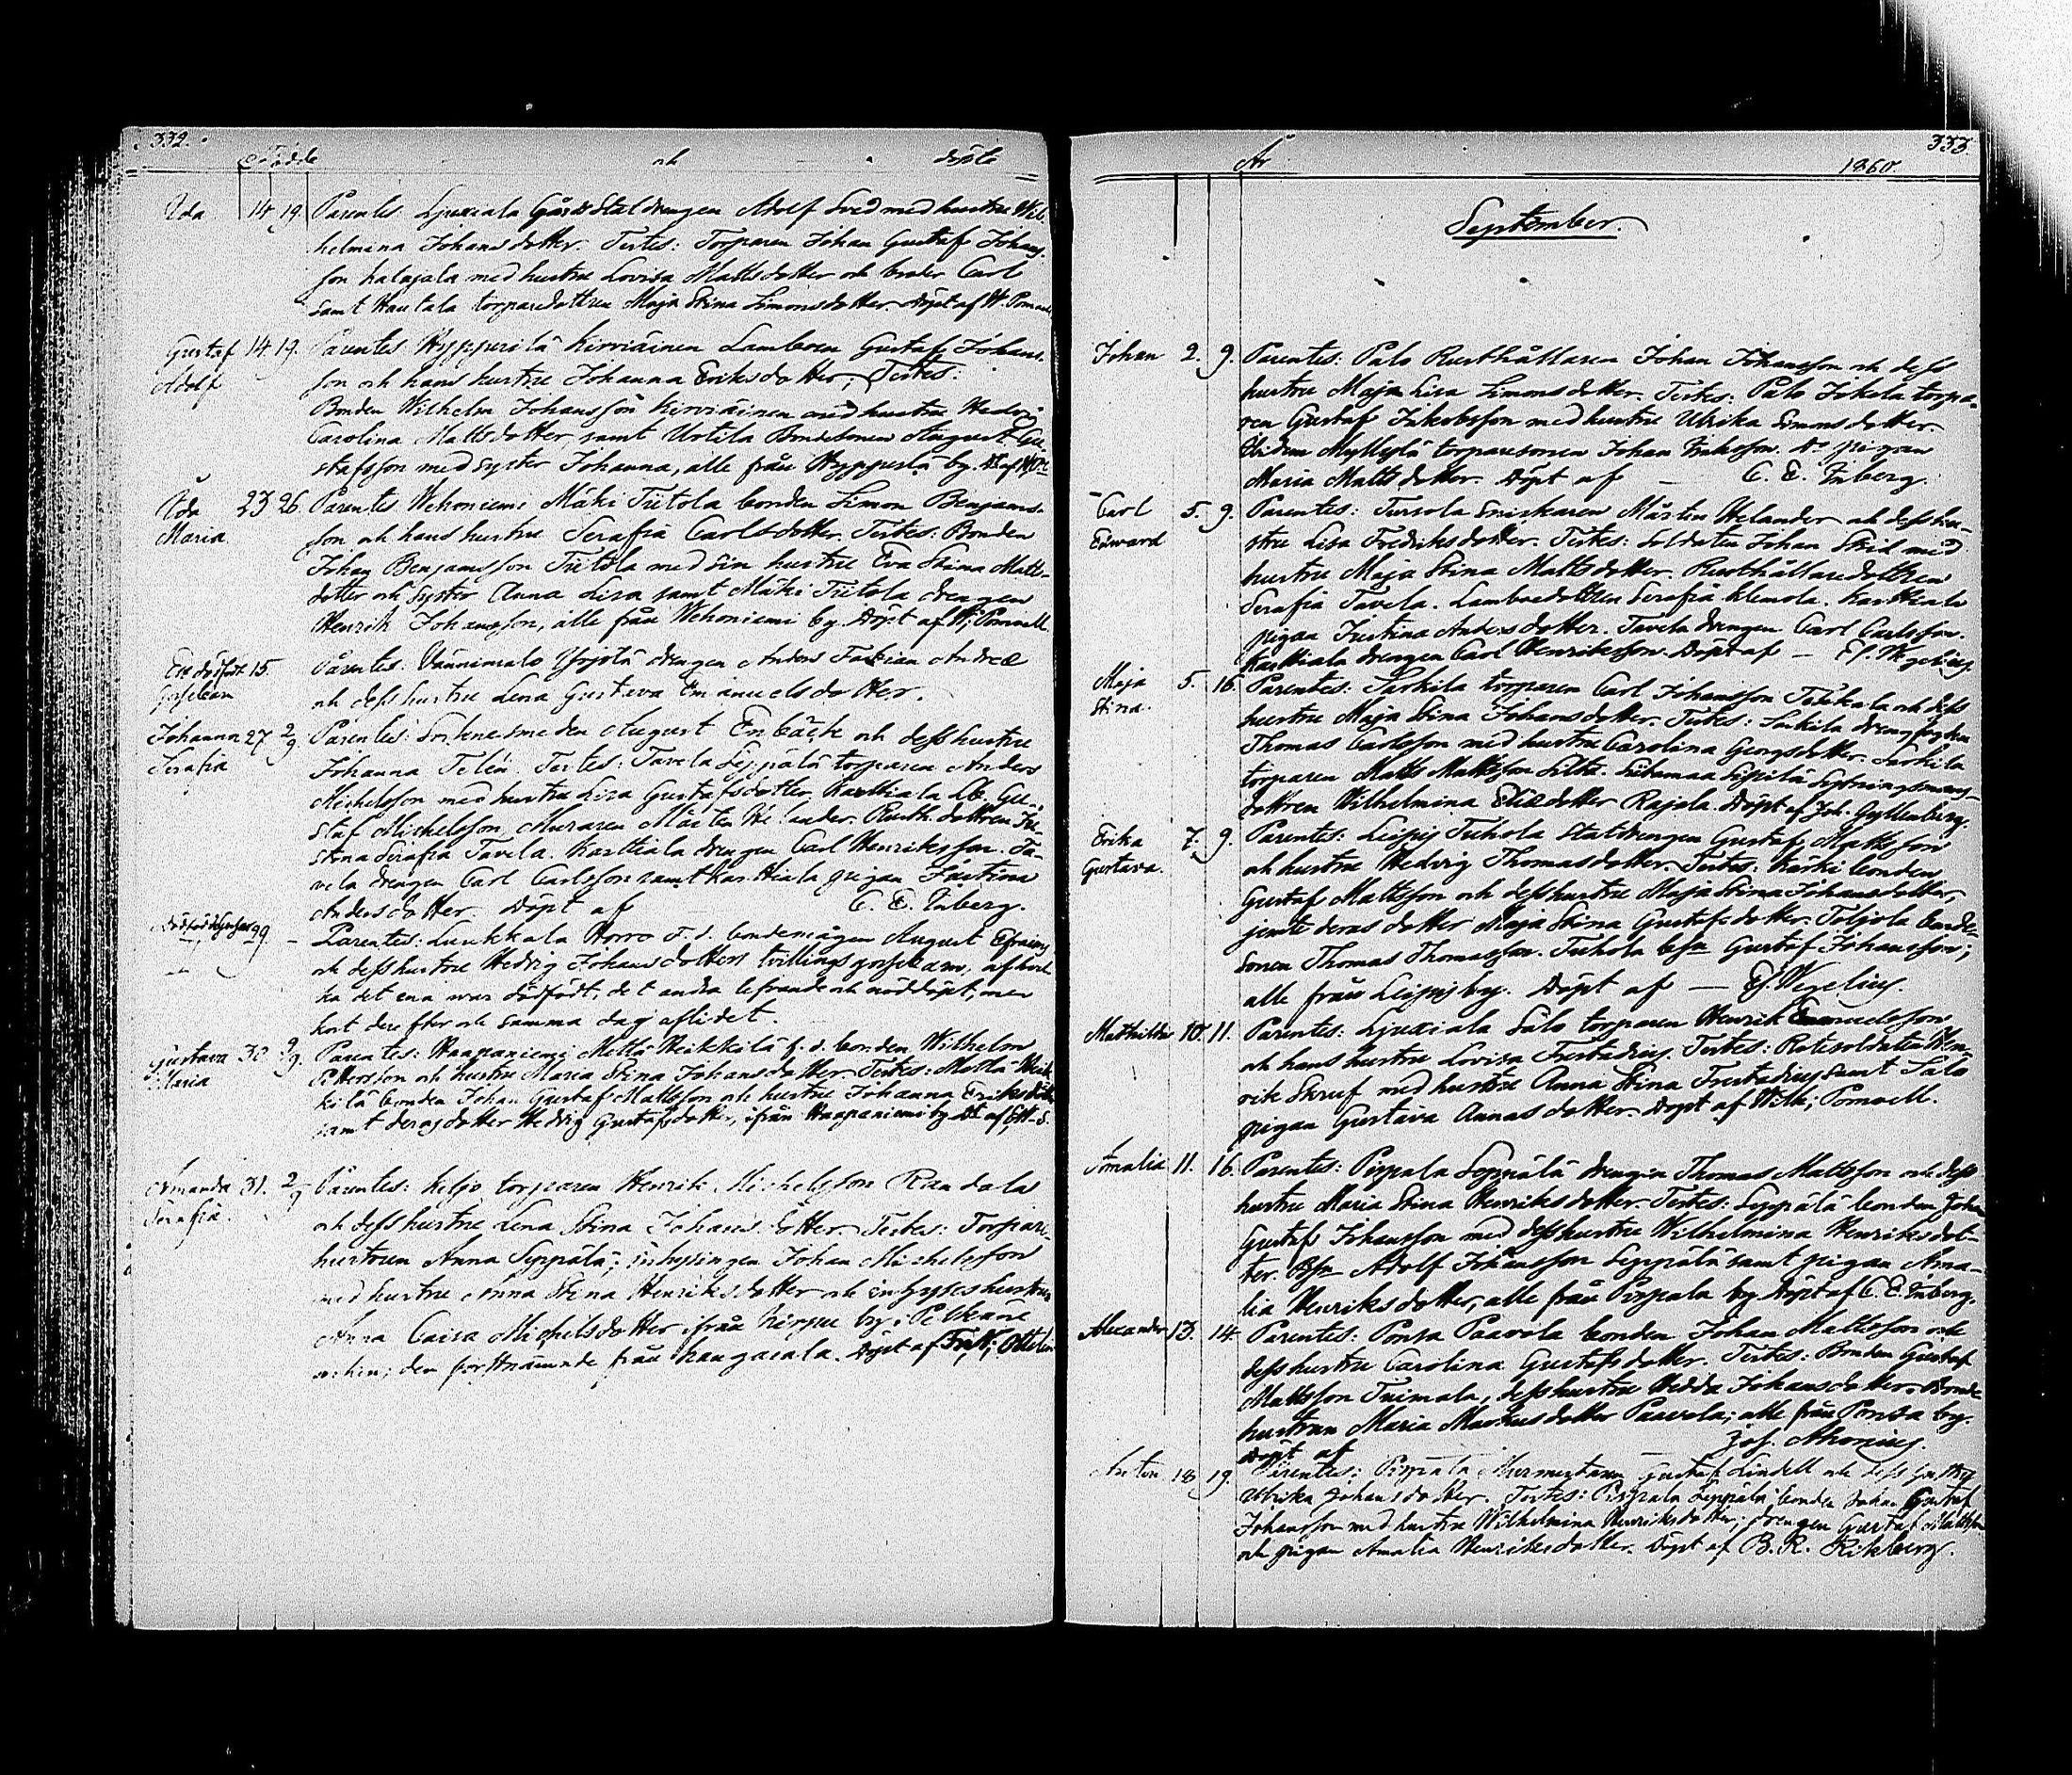 332.
Födde och döpte
Ida 14 19. Parentes Ljuxiala Gårds Staldrengen Adolf Sved med hustru Wil-
helmina Johansdotter. Testes: Torparen Johan Gustaf Johans-
son Kalajala med hustru Lovisa Mattsdotter och broder Carl
samt Hautala torparedottren Maja Stina Simonsdotter. Döpt af W. Pomoell
Gustaf 14. 19. Parentes Hyppärilä Kirviäinen Lamboen Gustaf Johans-
Adolf son och hans hustru Johanna Eriksdotter; Testes:
Bonden Wilhelm Johansson Kirviäinen med hustru Hedvig
Carolina Mattsdotter samt Urtila Bondesonen August Gu-
stafsson med syster Johanna, alle från by.
Ida 23 26 Parentes Wehoniemi Mäki Tiitola bonden Simon Benjams-
Maria son och hans hustru Serafia Carlsdotter. Testes: Bonden
Johan Benjamsson Tiitola med sin hustru Eva Stina Matts-
dotter och Syster Anna Lisa samt Mäki Tiitola drengen
Henrik Johansson, alle från Wehoniemi by. Döpt af W. Pomoell
Ett dödfödt 15. Parentes. Vännimalo Yrjölä drengen Anders Fabian Andreæ
gossebarn och dess hustru Lena Gustava Emanuelsdotter.
Johanna 27 2/9 Parentes: Socknesmeden August Enbäck och dess hustru
Serafia Johanna Telén. Testes: Tavela Seppälä torparen Anders
Michelsson med hustru Lisa Gustafsdotter. Karttiala Gu-
staf Michelsson, Muraren Mårten Helander. Rusth. dottren Ju-
stina Serafia Tavela. Karttiala drengen Carl Henriksson. Ta-
vela drengen Carl Carlsson samt Karttiala pigan Justina
Andersdotter. Döpt af C. E. Inberg.
29. Parentes: Luukkala Horro f.d. bondemågen August Efraims
och dess hustru Hedvig Johansdotters tvillings gossebarn, af hvil-
ka det ena war dödfödt, det andra lefvande och nöddöpt, men
kort derefter och samma dag aflidet.
Gustava 30 9/9. Parentes: Haapaniemi Mella Heikkilä f. d. bonden Wilhelm
Maria Pettersson och hustru Maria Stina Johansdotter. Testes: Mella Heik-
kilä bonden Johan Gustaf Mattsson och hustru Johanna Eriksdotter
samt deras dotter Hedvig Gustafsdotter, ifrån Haapaniemi by.
Amanda 31. 2/9 Parentes: Keljo torparen Henrik Michelsson Randala
Serafia. och dess hustru Lena Stina Johansdotter. Testes: Torpare-
hustrun Anna Seppälä; inhysingen Johan Michelsson
med hustru Anna Stina Henriksdotter och inhyses hustrun
Anna Caisa Michelsdotter ifrån by i Pelkäne
sokn; den förstnämnde från Kangasala. Döpt af
333.
År 1860.
September.
Johan 2. 9. Parentes: Palo Rusthållaren Johan Johansson och dess
hustru Maja Lisa Simonsdotter. Testes: Palo Jokela torpa-
ren Gustaf Jakobsson med hustru Ulrika Simonsdotter.
Ibidem Myllylä torparesonen Johan Eriksson. Do pigan
Maria Mattsdotter. Döpt af — C. E. Inberg.
Carl 5. 9. Parentes: Tursola Snickaren Mårten Helander och dess hu-
Edward stru Lisa Fredriksdotter. Testes: Soldaten Johan Strid med
hustru Maja Stina Mattsdotter. Rusthållaredottren
Serafia Tavela. Lamboedottren Serafia Klemola. Karttiala
pigan Justina Andersdotter. Tavela drengen Carl Carlsson.
Karttiala drengen Carl Henriksson. Döpt af — Ef. Wegelius
Maja 5. 16. Parentes: Sorkila torparen Carl Johansson och dess
Stina. hustru Maja Stina Johansdotter. Testes: Sorkila
Thomas Carlsson med hustru Carolina Georgsdotter. Sorkila
torparen Matts Mattsson Silta. Liitamaa Sipilä
dottren Wilhelmina Eliædotter Rajala. Döpt af Joh. Gyllenberg.
Erika 7. 9. Parentes: Leipis Tuhola Statdrengen Gustaf Mattsson
Gustava. och hustru Hedvig Thomasdotter. Testes: Kärki bonden
Gustaf Mattsson och dess hustru Maja Stina Johansdotter,
jemte deras dotter Maja Stina Gustafsdotter. Toljola bonde-
sonen Thomas Thomasson. Tuhola bsn Gustaf Johansson;
alle från Leipis by. Döpt af — Ef. Wegelius.
Mathilda 10. 11. Parentes: Ljuxiala Salo torparen Henrik Emanuelsson
och hans hustru Lovisa Frestadius. Testes: Rotesoldaten Hen-
rik Skruf med hustru Anna Stina Frestadius samt Salo
pigan Gustava Annasdotter. Döpt af Wilh; Pomoell.
Amalia 11. 16. Parentes: Pispala Seppälä drengen Thomas Mattsson och dess
hustru Maria Stina Henriksdotter. Testes: Seppälä bonden Johan
Gustaf Johansson med dess hustru Wilhelmina Henriksdot-
ter. Bsn Adolf Johansson Seppälä samt pigan Ama-
lia Henriksdotter, alle från Pispala by. Döpt af C. E. Inberg.
Alexander 13. 14. Parentes: Ponsa Paavola bonden Johan Mattsson och
dess hustru Carolina Gustafsdotter. Testes: Bonden Gustaf
Mattsson Tuimala, dess hustru Hedda Johansdotter. Bonde-
hustrun Maria Markusdotter Paavola; alle från Ponsa by.
Döpt af — Jos. Ahonius.
Anton 18 19. Parentes: Pispala Murmästaren Gustaf Lindell och dess hustru
Ulrika Johansdotter. Testes: Pispala Seppälä bonden Johan Gustaf
Johansson med hustru Wilhelmina Henriksdotter; drengen Gustaf Mattsson
och pigan Amalia Henriksdotter. Döpt af B. R. Rikberg.